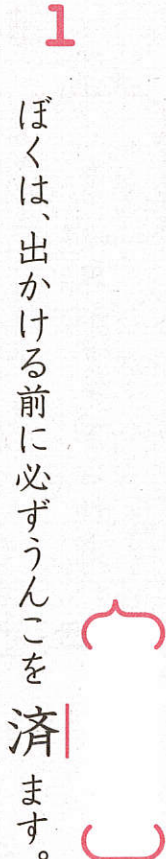 1
ぼくは、出かける前に必ずうんこを済ます。